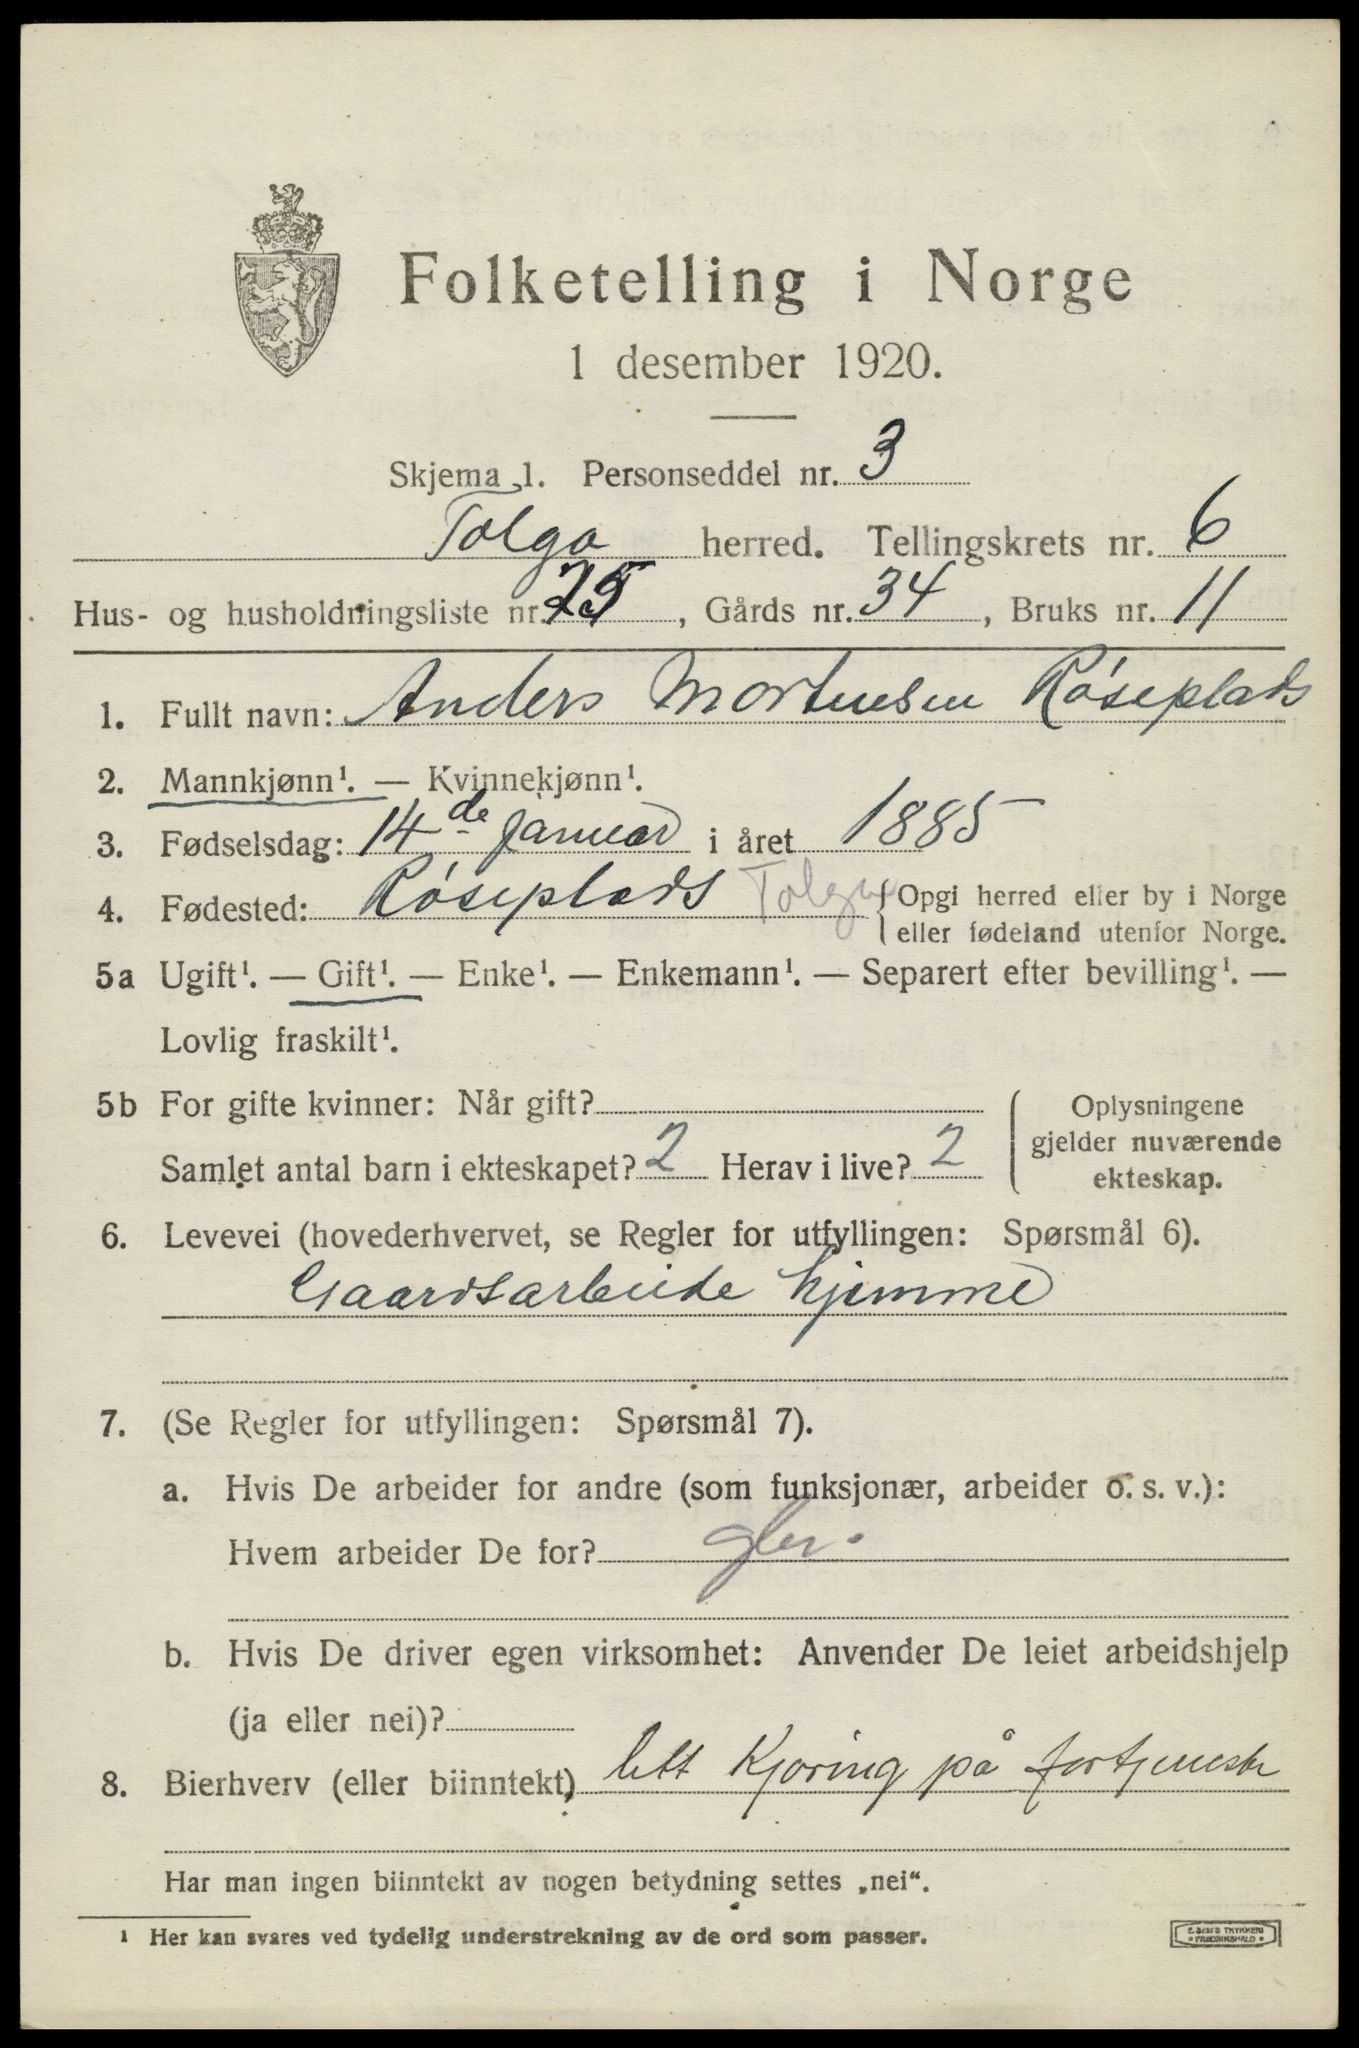 Folketelling i Norge
1 desember 1920.
Skjema 1. Personseddel nr. 3
Tolga herred. Tellingskrets nr. 6
Hus- og husholdningsliste nr. 25, Gårds nr. 34, Bruks nr. 11
1. Fullt navn: Anders Mortensen Röseplads
2. Mannkjønn¹. — Kvinnekjønn¹.
3. Fødselsdag: 14de januar i året 1885
4. Fødested: Röseplads Tolga {Opgi herred eller by i Norge
eller fødeland utenfor Norge.
5a Ugift¹. — Gift¹. — Enke¹. — Enkemann¹. — Separert efter bevilling¹. —
Lovlig fraskilt¹.
5b For gifte kvinner: Når gift?
Samlet antal barn i ekteskapet? 2 Herav i live? 2
Oplysningene
gjelder nuværende
ekteskap.
6. Levevei (hovederhvervet, se Regler for utfyllingen: Spørsmål 6).
Gaardsarbeide hjemme
7. (Se Regler for utfyllingen: Spørsmål 7).
a. Hvis De arbeider for andre (som funksjonær, arbeider o. s. v.):
Hvem arbeider De for?
b. Hvis De driver egen virksomhet: Anvender De leiet arbeidshjelp
(ja eller nei)?
8. Bierhverv (eller biinntekt) litt Kjøring på fortjeneste
Har man ingen biinntekt av nogen betydning settes „nei“.
¹ Her kan svares ved tydelig understrekning av de ord som passer.